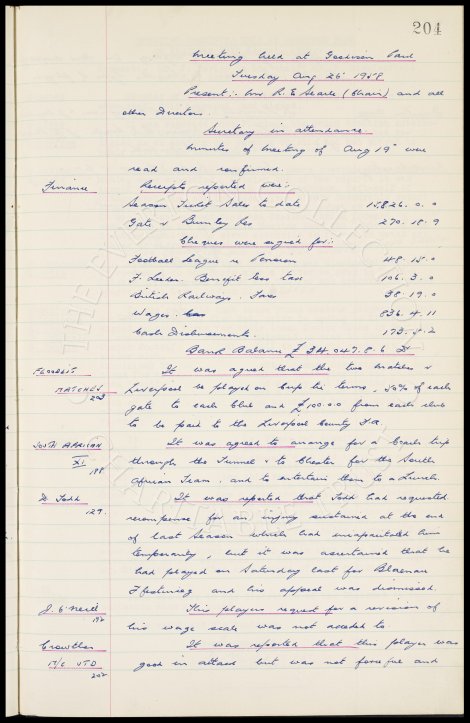 204
Meeting held at Goodison Park
Tuesday Aug 26' 1958
Present:- Mr R. E. Searle (Chair) and all
other Directors.
Secretary in attendance
Minutes of Meeting of Aug 19" were
read and confirmed.
Finance
Receipts reported were:-
Season Ticket Sales to date 15,826. 0. 0
Gate v Burnley Res 270. 18. 9
Cheques were signed for:-
Football League re Pension 48. 15. 0
F. Leader. Benefit less tax 106. 3. 0
British Railways. Fares 38. 19. 0
Wages. 836. 4. 11
Cash Disbursements. 173. 5. 2
Bank Balance £34,047. 8. 6 Dr
Floodlit
Matches
203
It was agreed that the two matches v
Liverpool be played on Cup tie terms, 50% of each
gate to each Club and £100.0.0 from each club
to be paid to the Liverpool County F.A.
South African
XI.
198
It was agreed to arrange for a Coach trip
through the Tunnel & to Chester for the South
African Team. and to entertain them to a Lunch.
D. Todd
129.
It was reported that Todd had requested
recompense for an injury sustained at the end
of last Season which had incapacitated him
temporarily, but it was ascertained that he
had played on Saturday last for Blaenau
Ffestiniog and his appeal was dismissed.
J. O'Neill
192
This players request for a revision of
his wage scale was not acceded to
Crowther
M/C UTD
202
It was reported that this player was
good in attack but was not forceful and
THE EVERTON COLLECTION
CHARITABLE